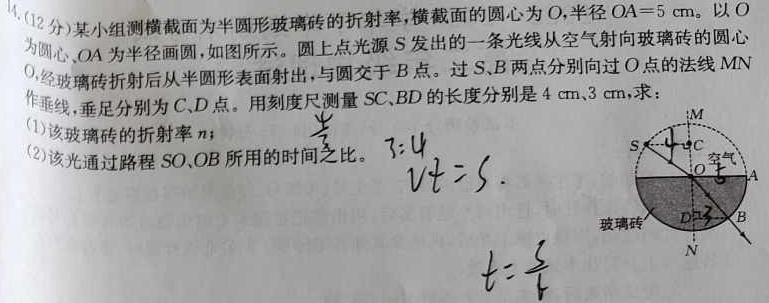 14.(12分)某小组测横截面为半圆形玻璃砖的折射率,横截面的圆心为O,半径OA=5 cm。以O
为圆心、OA为半径画圆,如图所示。圆上点光源S发出的一条光线从空气射向玻璃砖的圆心
O,经玻璃砖折射后从半圆形表面射出,与圆交于B点。过S、B两点分别向过O点的法线MN
作垂线,垂足分别为C、D点。用刻度尺测量SC、BD的长度分别是4 cm、3 cm,求:
(1)该玻璃砖的折射率n; 4/3
(2)该光通过路程SO、OB所用的时间之比。 3:4
vt=s.
t=s/v
M
S 4 C
空气
O 5 A
玻璃砖 D 3 B
N